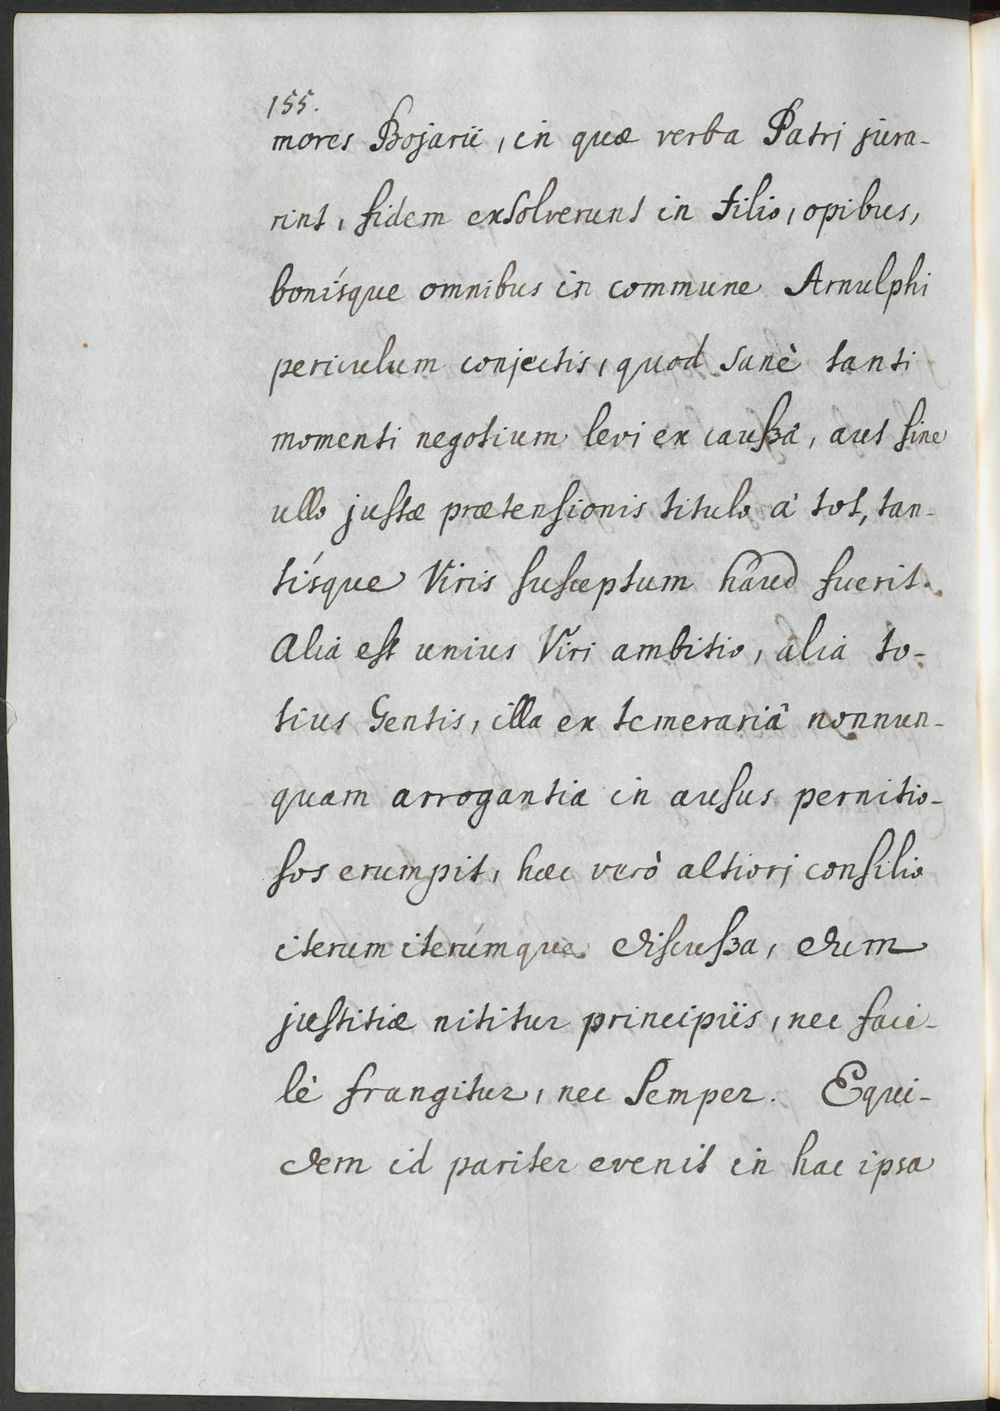 155.
mores Bojarii, in quæ verba Patri jura-
rint, fidem exsolverunt in Filio, opibus,
bonísque omnibus in commune Arnulphi
periculum conjectis, quod sanè tanti
momenti negotium levi ex caußâ, aut sine
ullo justæ prætensionis titulo à tot, tan-
tísque Viris susceptum haud fuerit.
Alia est unius Viri ambitio, alia to-
tius Gentis, illa ex temerariâ nonnun-
quam arrogantia in ausus pernitio-
sos erumpit, hæc verò altiori consilio
iterum iterúmque discußa, dum
justitiæ nititur principiis, nec faci-
lè frangitur, nec semper. Equi-
dem id pariter evenit in hac ipsa